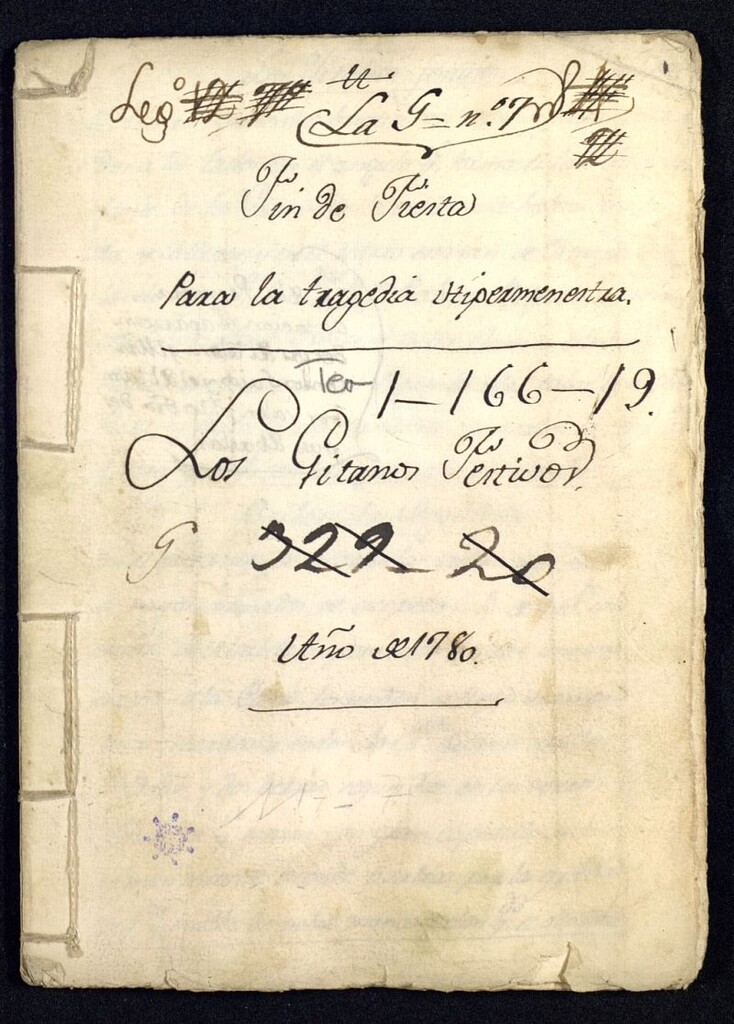 Legº
La G = n.º 7
Fin de Fiesta
Para la tragedia Hipermenestra.
Tea 1-166-19.
Los Gitanos Festivos
G 322-20
Año de 1780.